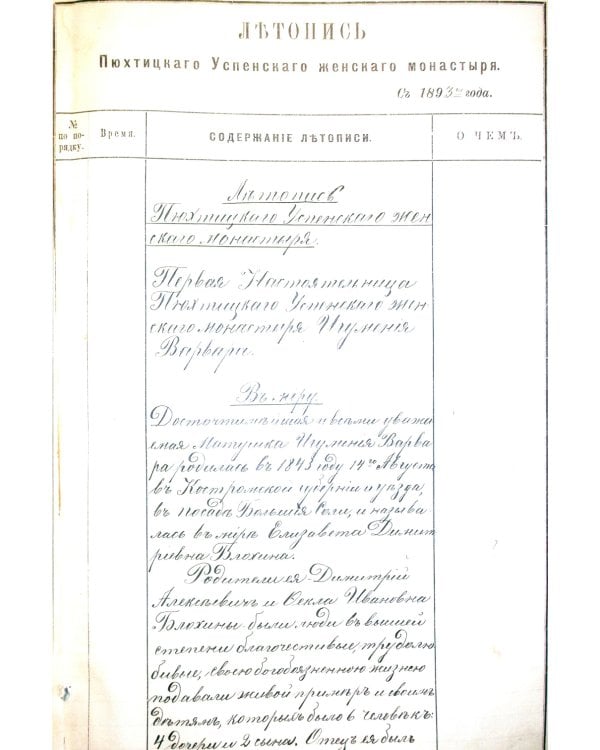 ЛѢТОПИСЬ
Пюхтицкаго Успенскаго женскаго монастыря.
Съ 1893 года.
№ по порядку.
Время.
СОДЕРЖАНІЕ ЛѢТОПИСИ.
О ЧЕМЪ.
Лѣтопись
Пюхтицкаго Успенскаго жен
скаго монастыря.
Первая Настоятельница
Пюхтицкаго Успенскаго жен
скаго монастиря Игуменія
Варвара.
Въ міру
Досточтимѣйшая и всѣми уважа
емая Матушка Игуменія Варва
ра родилась въ 1843 году 14го Августа
въ Костромской губерніи и уѣзда,
въ посадѣ Большія Соли, и называ
лась въ мірѣ Елизавета Димит
ріевна Блохина.
Родители ея Димитрій
Алексѣевичъ и Ѳекла Ивановна
Блохины были люди въ высшей
степени благочестивые, трудолю
бивые, своею богобоязненною жизнею
подавали живой примѣръ и своимъ
дѣтямъ, которыхъ было 6 человѣкъ:
4 дочери и 2 сына. Отецъ ея былъ